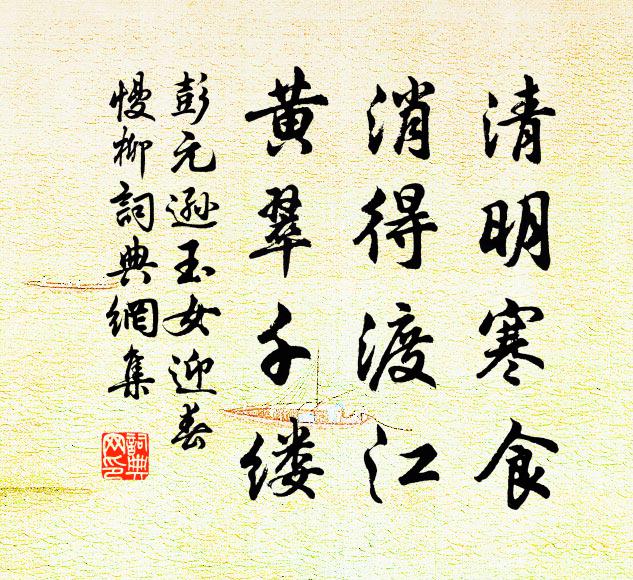 清明寒食
消得渡江
黄翠千缕
彭元逊玉女迎春
慢柳詞典網集
詞典
网印